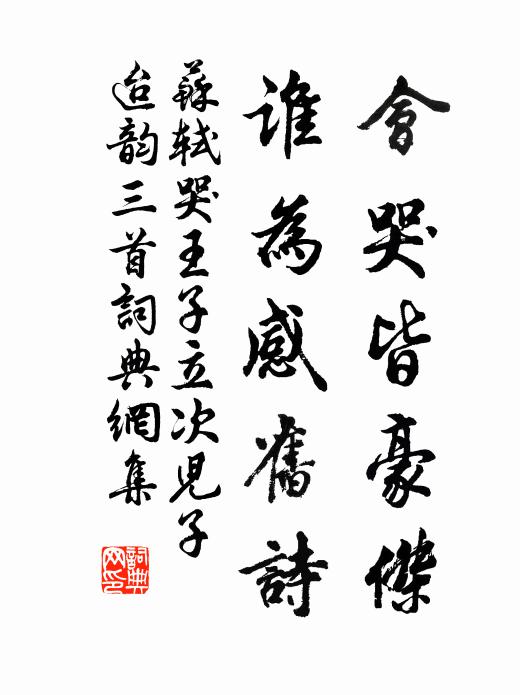 會哭皆豪傑
誰為感舊詩
蘇軾哭王子立次兒子
迨韵三首詞典網集
詞典
网印